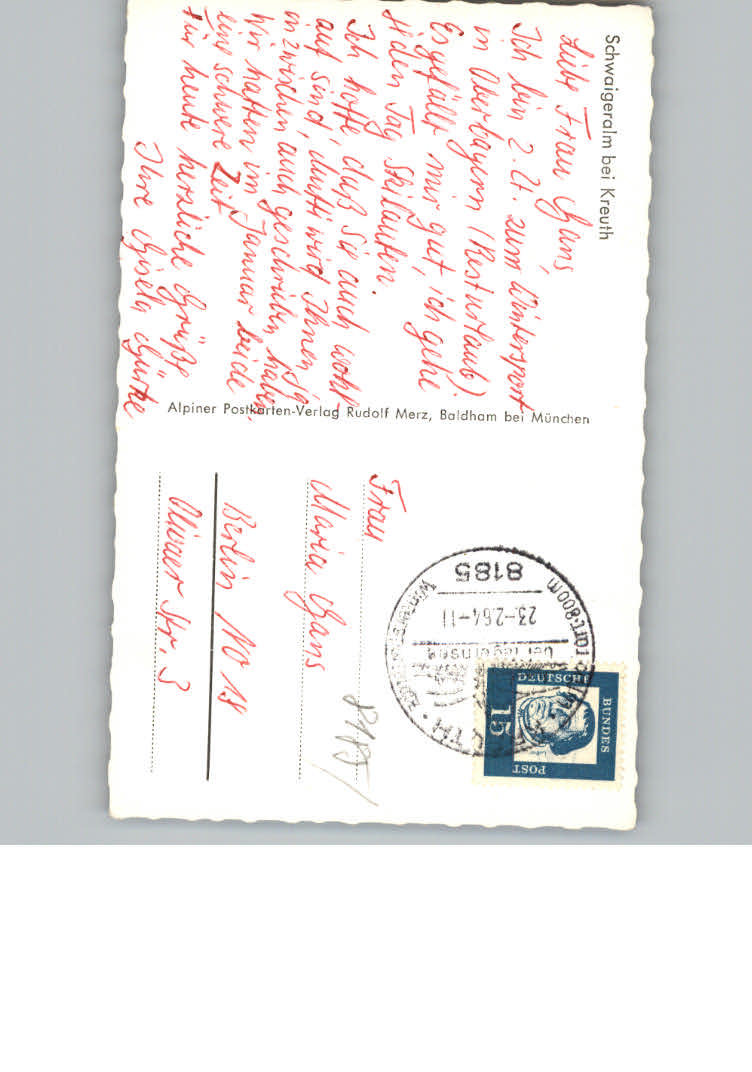 Schwaigeralm bei Kreuth
Liebe Frau Gans,
Ich bin z. Zt. zum Wintersport
in Oberbayern (Resturlaub)
Es gefällt mir gut, ich gehe
jeden Tag Skilaufen.
Ich hoffe, daß Sie auch wohl-
auf sind, Mutti wird Ihnen ja
inzwischen auch geschrieben haben,
Wir hatten im Januar beide
eine schwere Zeit
Für heute herzliche Grüße
Ihre Gisela
Alpiner Postkarten-Verlag Rudolf Merz, Baldham bei München
Frau
Maria Gans
Berlin NO 18
Str. 3
8185
8185
23.-2.64-11
bei Tegernsee
800m
DEUTSCHE
BUNDES
POST
15
Luther